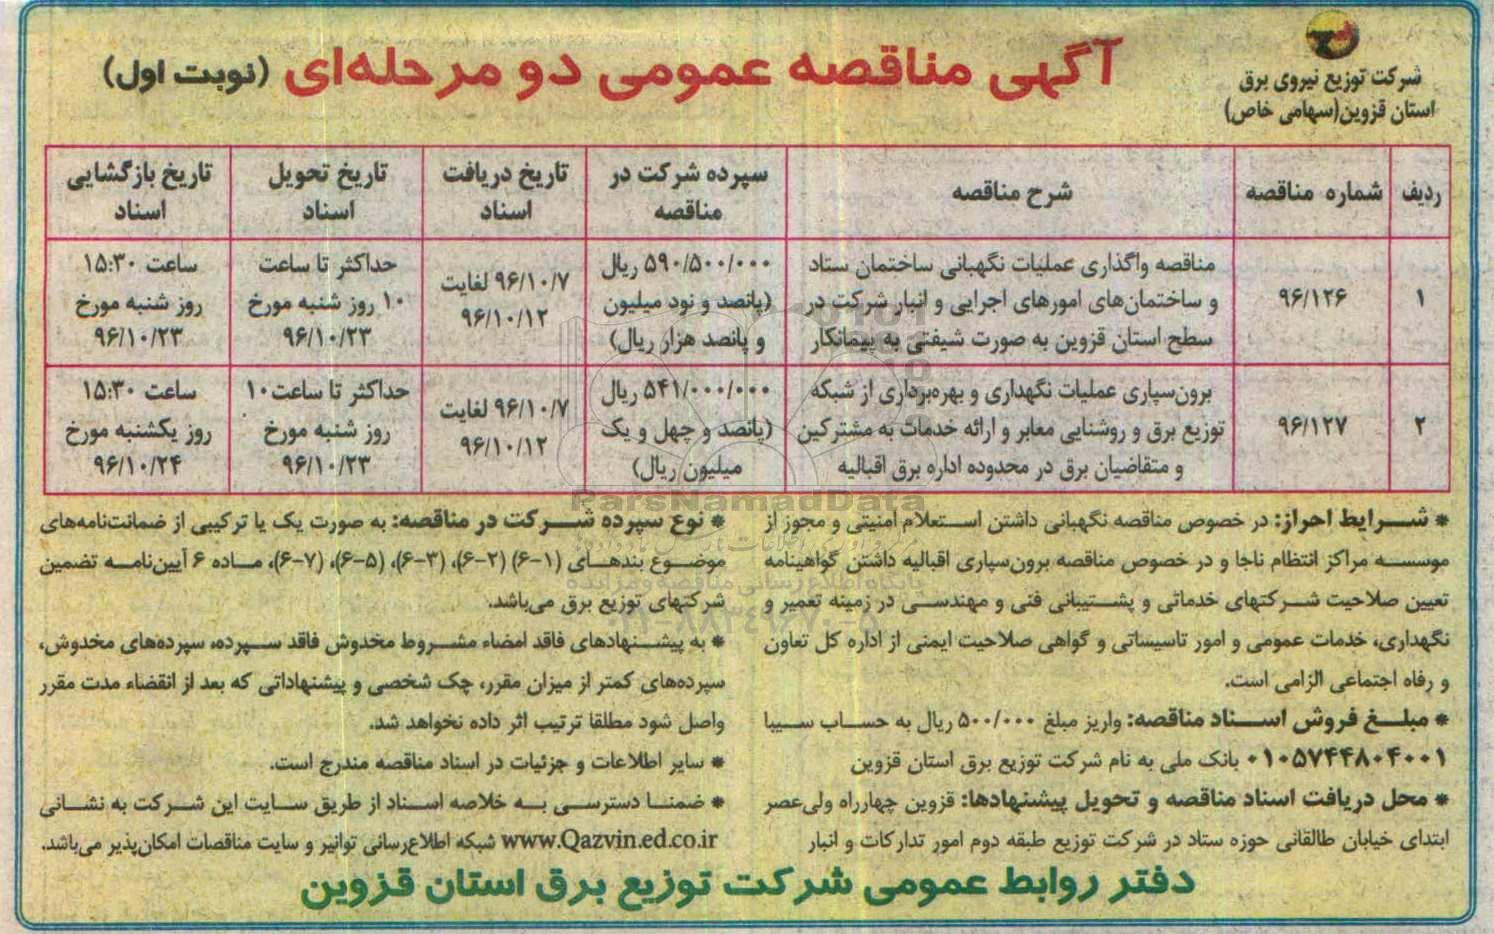 شرکت توزیع نیروی برق
استان قزوین(سهامی خاص)
آگهی مناقصه عمومی دو مرحله‌ای (نوبت اول)
ردیف
شماره مناقصه
شرح مناقصه
سپرده شرکت در
مناقصه
تاریخ دریافت
اسناد
تاریخ تحویل
اسناد
تاریخ بازگشایی
اسناد
۱
۹۶/۱۲۶
مناقصه واگذاری عملیات نگهبانی ساختمان ستاد
و ساختمان‌های امورهای اجرایی و انبار شرکت در
سطح استان قزوین به صورت شیفتی به پیمانکار
۵۹۰/۵۰۰/۰۰۰ ریال
(پانصد و نود میلیون
و پانصد هزار ریال)
۹۶/۱۰/۷ لغایت
۹۶/۱۰/۱۲
حداکثر تا ساعت
۱۰ روز شنبه مورخ
۹۶/۱۰/۲۳
ساعت ۱۵:۳۰
روز شنبه مورخ
۹۶/۱۰/۲۳
۲
۹۶/۱۲۷
برون‌سپاری عملیات نگهداری و بهره‌برداری از شبکه
توزیع برق و روشنایی معابر و ارائه خدمات به مشترکین
و متقاضیان برق در محدوده اداره برق اقبالیه
۵۴۱/۰۰۰/۰۰۰ ریال
(پانصد و چهل و یک
میلیون ریال)
۹۶/۱۰/۷ لغایت
۹۶/۱۰/۱۲
حداکثر تا ساعت۱۰
روز شنبه مورخ
۹۶/۱۰/۲۳
ساعت ۱۵:۳۰
روز یکشنبه مورخ
۹۶/۱۰/۲۴
ParsNamadData
* شرایط احراز: در خصوص مناقصه نگهبانی داشتن استعلام امنیتی و مجوز از
موسسه مراکز انتظام ناجا و در خصوص مناقصه برون‌سپاری اقبالیه داشتن گواهینامه
تعیین صلاحیت شرکتهای خدماتی و پشتیبانی فنی و مهندسی در زمینه تعمیر و
نگهداری، خدمات عمومی و امور تاسیساتی و گواهی صلاحیت ایمنی از اداره کل تعاون
و رفاه اجتماعی الزامی است.
* مبلغ فروش اسناد مناقصه: واریز مبلغ ۵۰۰/۰۰۰ ریال به حساب سیبا
۰۱۰۵۷۴۴۸۰۴۰۰۱ بانک ملی به نام شرکت توزیع برق استان قزوین
* محل دریافت اسناد مناقصه و تحویل پیشنهادها: قزوین چهارراه ولی‌عصر
ابتدای خیابان طالقانی حوزه ستاد در شرکت توزیع طبقه دوم امور تدارکات و انبار
* نوع سپرده شرکت در مناقصه: به صورت یک یا ترکیبی از ضمانت‌نامه‌های
موضوع بندهای (۱-۶) (۲-۶)، (۳-۶)، (۵-۶)، (۷-۶)، ماده ۶ آیین‌نامه تضمین
شرکتهای توزیع برق می‌باشد.
* به پیشنهادهای فاقد امضاء مشروط مخدوش فاقد سپرده، سپرده‌های مخدوش،
سپرده‌های کمتر از میزان مقرر، چک شخصی و پیشنهاداتی که بعد از انقضاء مدت مقرر
واصل شود مطلقا ترتیب اثر داده نخواهد شد.
* سایر اطلاعات و جزئیات در اسناد مناقصه مندرج است.
* ضمنا دسترسی به خلاصه اسناد از طریق سایت این شرکت به نشانی
www.Qazvin.ed.co.ir شبکه اطلاع‌رسانی توانیر و سایت مناقصات امکان‌پذیر می‌باشد.
پایگاه اطلاع رسانی مناقصه و مزایده
دفتر روابط عمومی شرکت توزیع برق استان قزوین